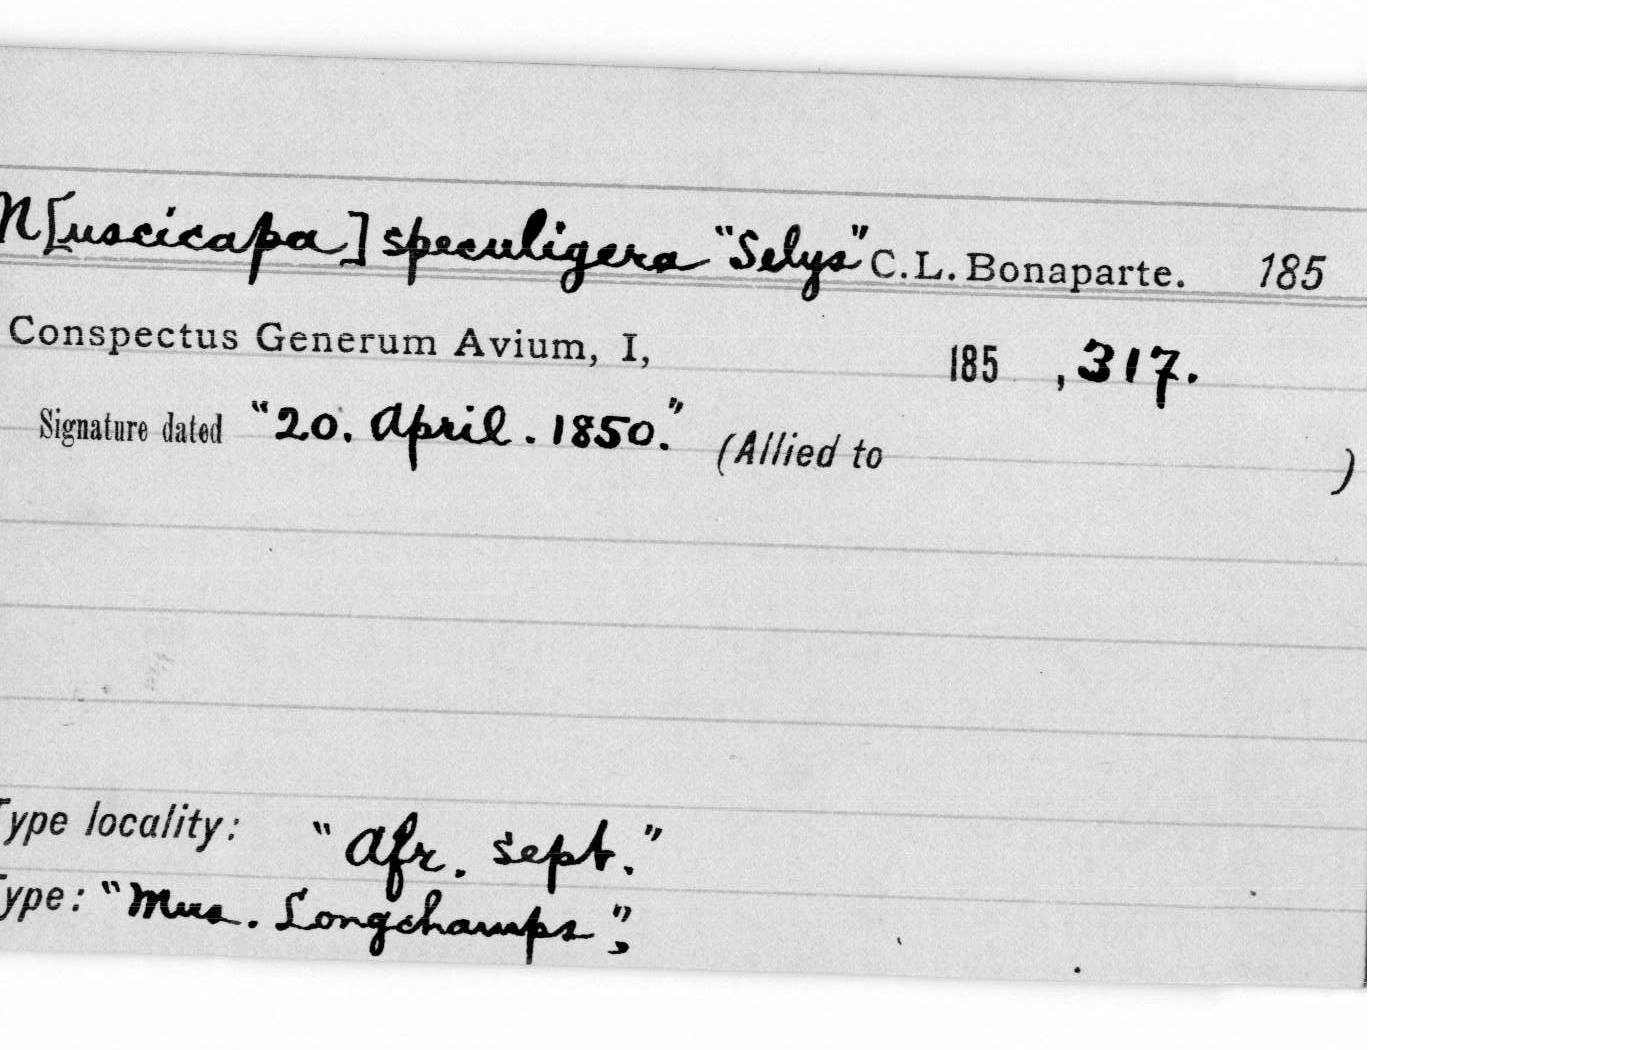 M[uscicapa] speculigera "Selys" C.L. Bonaparte. 185
Conspectus Generum Avium, I, 185 , 317.
Signature dated "20. April. 1850." (Allied to )
Type locality: "Afr. sept."
Type: "Mus. Longchamps";